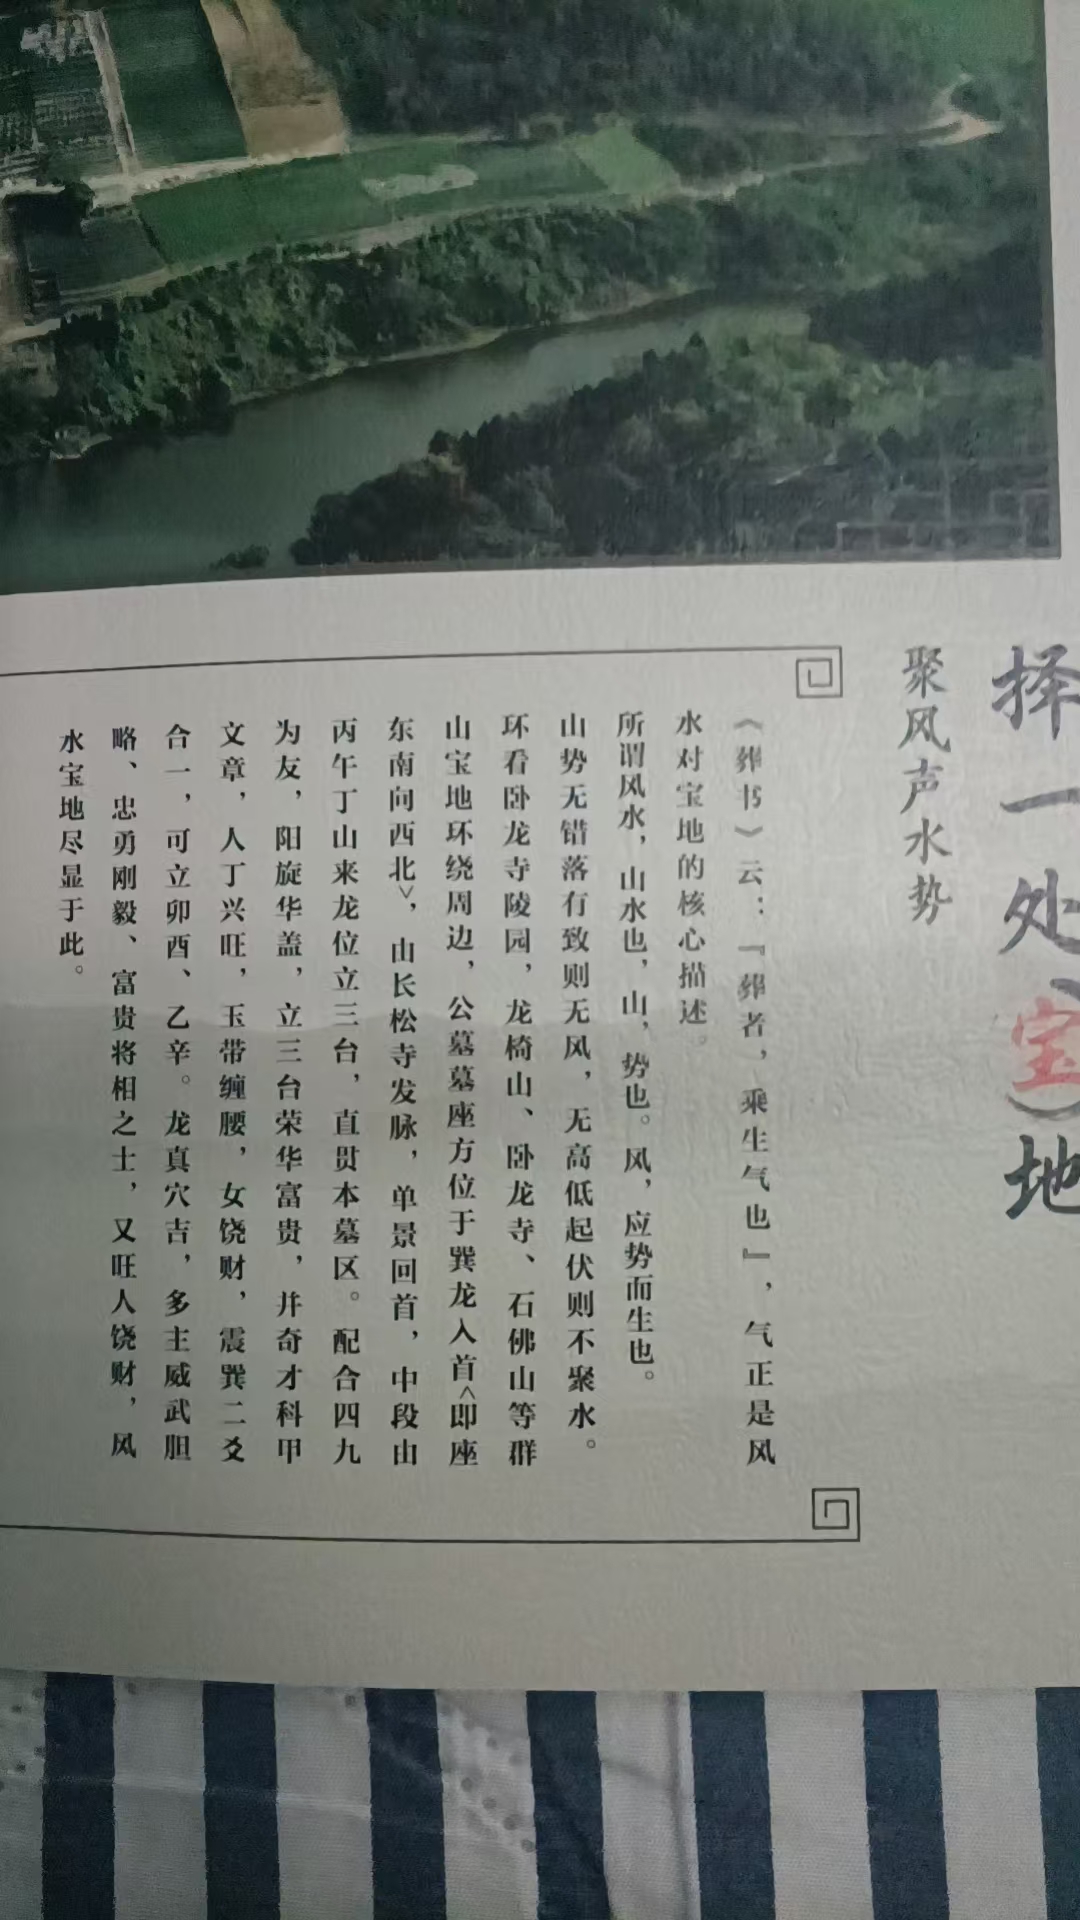 择一处宝地
聚风声水势
《葬书》云：『葬者，乘生气也』，气正是风
水对宝地的核心描述。
所谓风水，山水也，山，势也。风，应势而生也。
山势无错落有致则无风，无高低起伏则不聚水。
环看卧龙寺陵园，龙椅山、卧龙寺、石佛山等群
山宝地环绕周边，公墓墓座方位于巽龙入首<即座
东南向西北>，由长松寺发脉，单景回首，中段由
丙午丁山来龙位立三台，直贯本墓区。配合四九
为友，阳旋华盖，立三台荣华富贵，并奇才科甲
文章，人丁兴旺，玉带缠腰，女饶财，震巽二爻
合一，可立卯酉、乙辛。龙真穴吉，多主威武胆
略、忠勇刚毅、富贵将相之士，又旺人饶财，风
水宝地尽显于此。